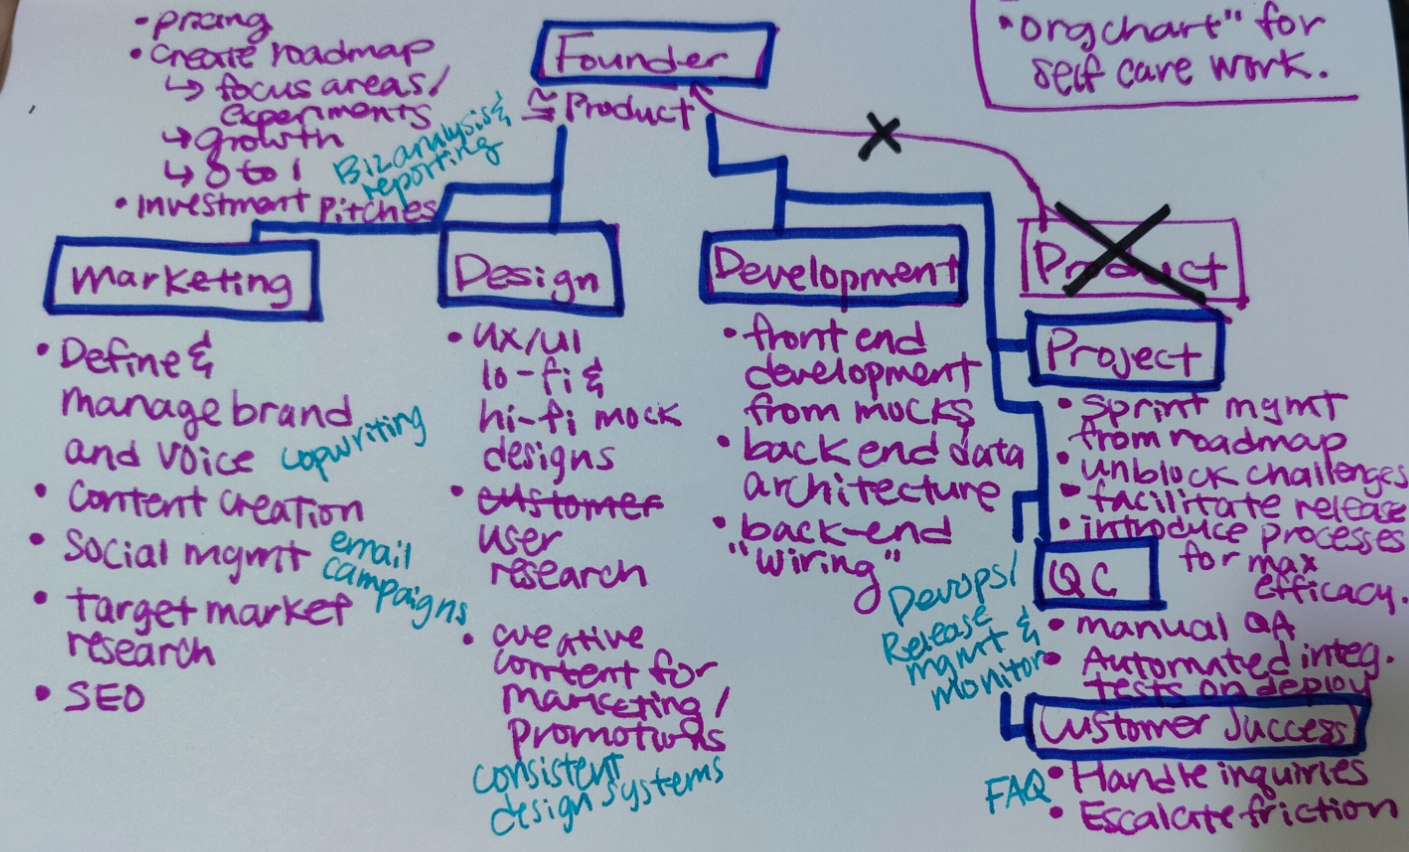 • pricing
• create roadmap
↳ focus areas/
experiments
→ growth
↳ 0 to 1
• investment pitches
Biz analysis &
reporting
Founder
≅ Product
• "orgchart" for
self care work.
Marketing
• Define &
manage brand
and voice
copwriting
• content creation
• social mgmt
email
campaigns
• target market
research
• SEO
Design
• UX/UI
lo-fi &
hi-fi mock
designs
• customer
user
research
• creative
content for
marketing/
promotions
consistent
design systems
Development
• front end
development
from mocks
• back end data
architecture
• back-end
"wiring"
Devops/
Release
mgmt &
monitor
Product
Project
• sprint mgmt
from roadmap
• unblock challenges
• facilitate release
• introduce processes
for max
efficacy.
QC
• manual QA
• Automated integ.
tests on deploy
Customer Success
FAQ
• Handle inquiries
• Escalate friction